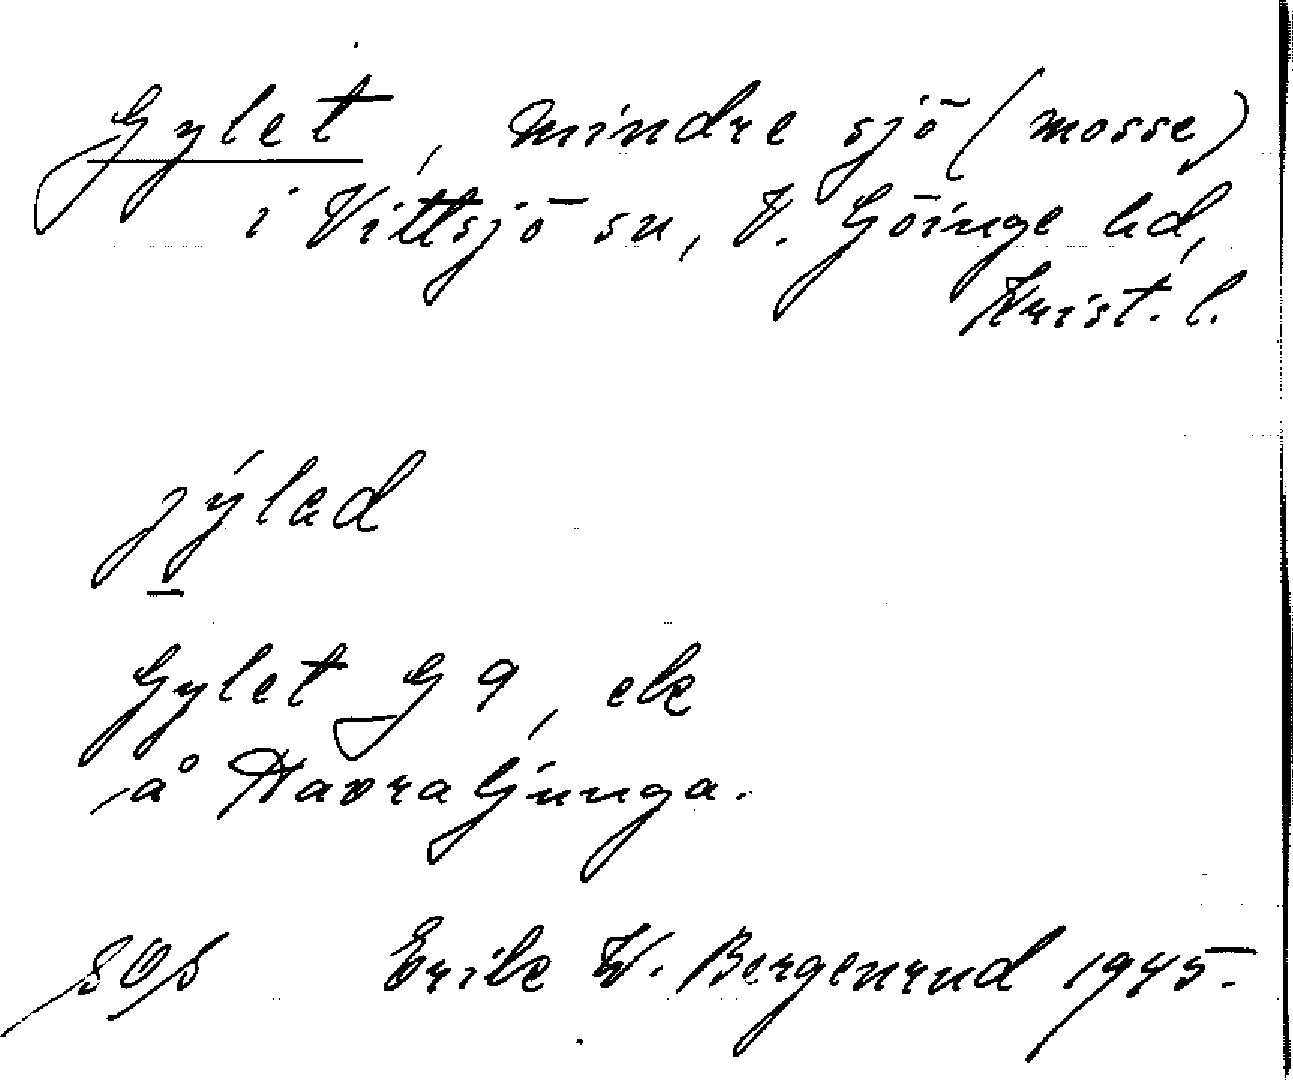 Gylet, mindre sjö (mosse)
i Vittsjö sn, V. Göinge hd,
Krist. l.
jýlad
Gylet G 9, ek
å Havraljunga.
SOS Erik W. Bergenrud 1945.